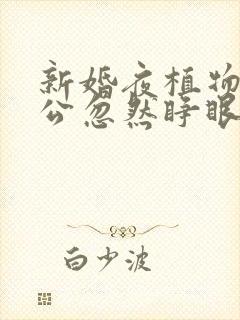 新婚夜植物
公忽然睁眼
白少波